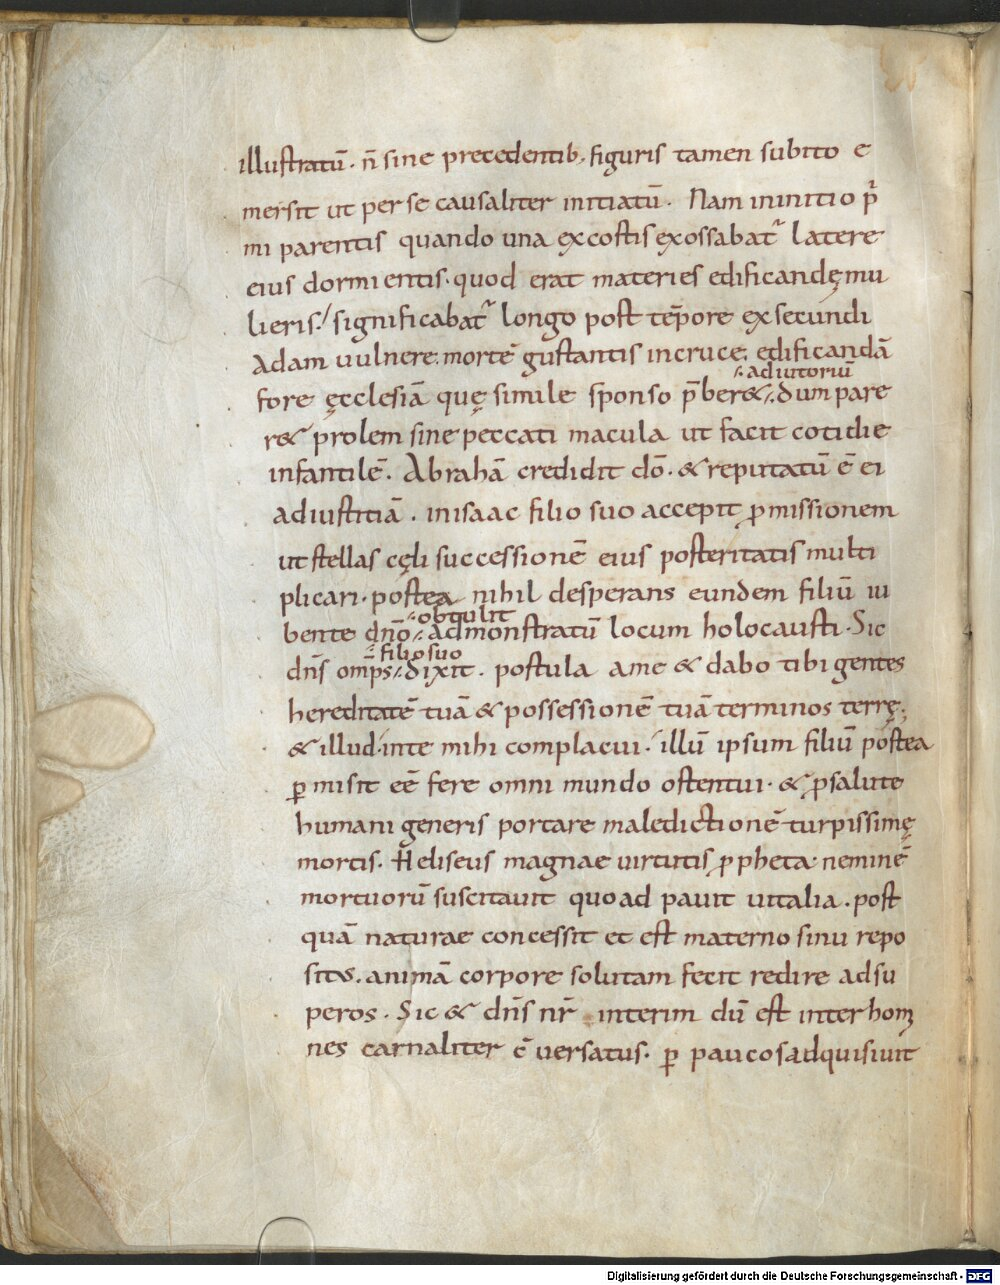 illustratū · n̄ sine precedentib; figuris tamen subito e
mersit ut per se causaliter initiatū · Nam ininitio p̄
mi parentis quando una excostis exossabat᷑ latere
eius dormientis · quod erat materies edificandę mu
lieris · significabat᷑ longo post tēpore exsecundi
Adam uulnere morte᷑̄ gustantis incruce edificandā
·adiutoriū
fore ęcclesiā quę simile sponso p̄ber& · dum pare
r& prolem sine peccati macula ut facit cotidie
infantilē · Abrahā credidit dō · & reputatū ē ei
adiustitiā · inisaac filio suo accepit ꝓmissionem
ut stellas cęli successionē eius posteritatis multi
plicari · postea nihil desperans eundem filiū iu
·obtulit
bente dn̄o · admonstratū locum holocausti · Sic
·filio suo
dn̄s omp̄s · dixit · postula ame & dabo tibi gentes
hereditatē tuā & possessionē tuā terminos terrę ;
& illud · inte mihi complacui · illū ipsum filiū postea
ꝑmisit eē fere omni mundo ostentui · & ꝓsalute
humani generis portare maledictionē turpissimę
mortis · Heliseus magnae uirtutis ꝓpheta neminē
mortuorū suscitauit quoad pauit uitalia · post
quā naturae concessit et est materno sinu repo
sitos · animā corpore solutam fecit redire adsu
peros · Sic & dn̄s nr̄ interim dū est inter homi
nes carnaliter c̄uersatus · ꝑ paucos adquisiuit
Digitalisierung gefördert durch die Deutsche Forschungsgemeinschaft - DFG